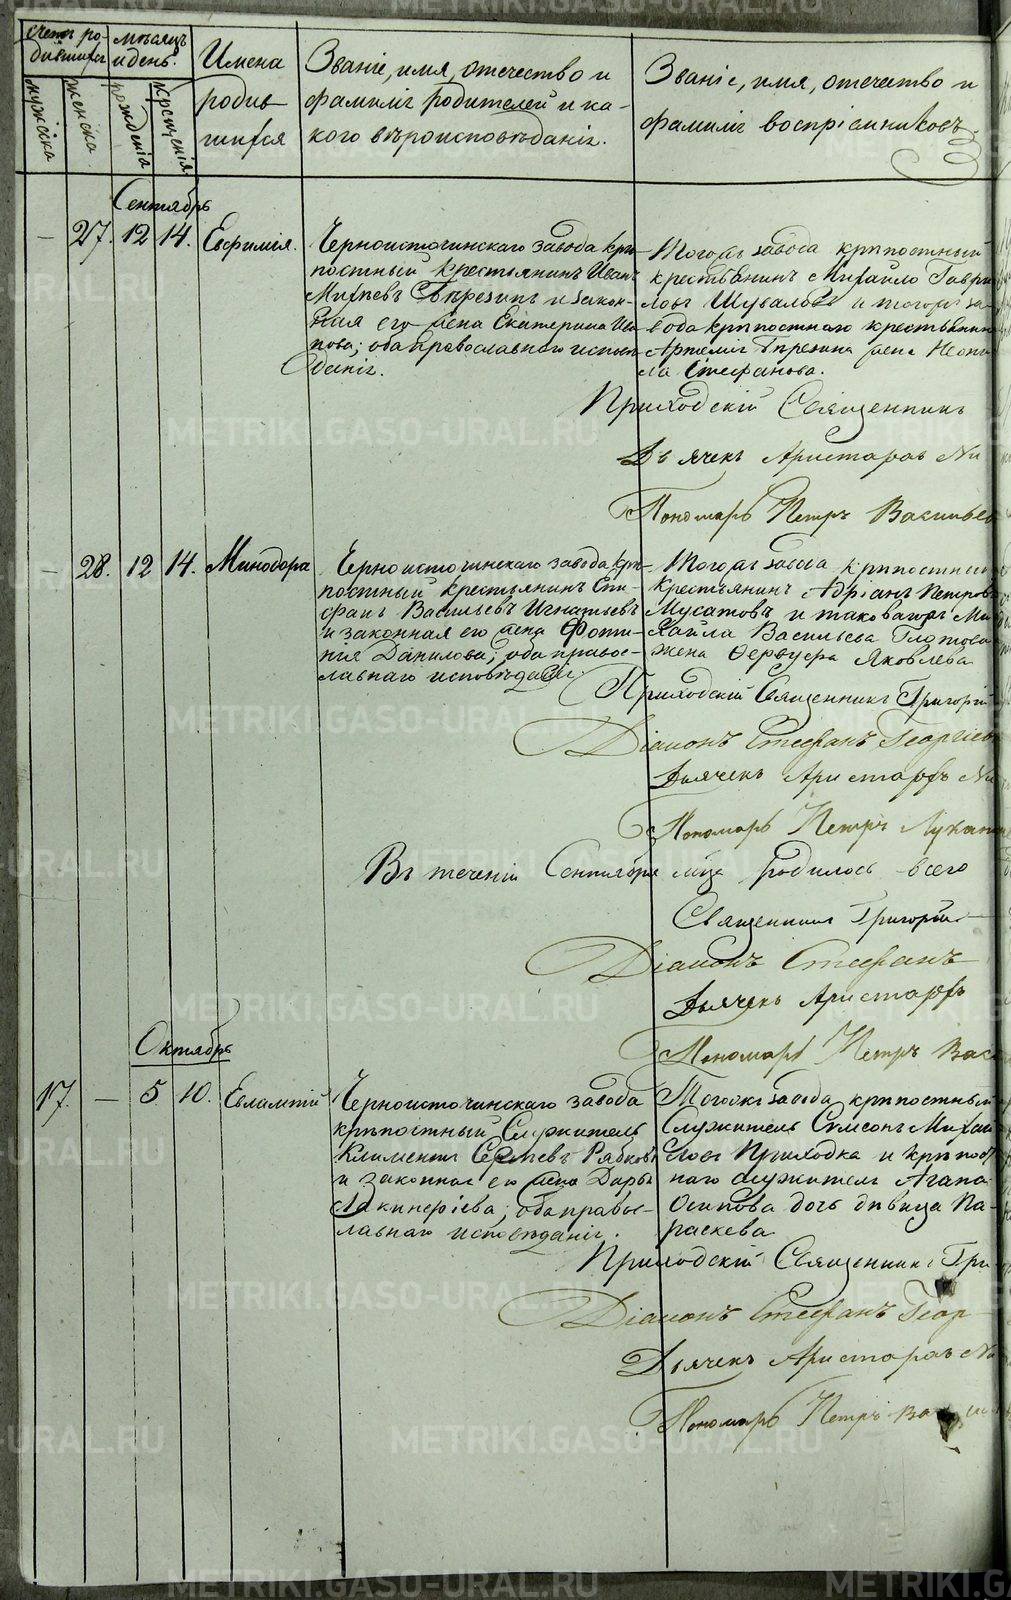 Счетъ ро-
дившихся
мужска
женска
мѣсяцъ
и день.
рожденія
крещенія
Имена
родив-
шихся
Званіе, имя, отечество и
фамилія родителей и ка-
кого вѣроисповѣданія.
Званіе, имя, отечество и
фамилія воспріемниковъ.
Сентябрь
— 27. 12 14. Евфимія.
Черноисточинскаго завода крѣ-
постный крестьянинъ Иванъ
и закон-
ная его жена Екатерина Ива-
нова; оба православнаго испов-
ѣданія.
Тогожъ завода крѣпостный
крестьянинъ Михайло Гаври-
ловъ Шуваловъ и тогожъ за-
вода крѣпостнаго крестьянина
Артемія жена Неони-
ла Стефанова.
Приходскій Священникъ
Дьячекъ Аристархъ Ни
Пономарь Петръ Васильев
— 28. 12 14. Минодора
Черноисточинскаго завода крѣ-
постный крестьянинъ Епи-
фанъ Васильевъ Игнатьевъ
и законная его жена Фоти-
нія Данилова; оба правос-
лавнаго исповѣданія.
Тогожъ завода крѣпостный
крестьянинъ Адріанъ Петровъ
Мусатовъ и таковагожъ Ми-
хайла Васильева Глотова
жена Яковлева
Приходскій Священникъ Григорій
Діаконъ Стефанъ Георгіев
Дьячекъ Аристархъ Ни
Пономарь Петръ Лукан
Въ теченіи Сентября м-ца родилось всего
Священникъ Григорій
Діаконъ Стефанъ
Дьячекъ Аристархъ
Пономарь Петръ Вас
Октябрь
17. — 5 10. Евлампій
Черноисточинскаго завода
крѣпостный Служитель
Климентъ Сергѣевъ Рябковъ
и законная его жена Дарья
Якинфіева; оба правос-
лавнаго исповѣданія.
Тогожъ завода крѣпостный
Служитель Сѵмеонъ Михай-
ловъ Приходка и крѣпост-
наго служителя Агапа
Осипова дочь дѣвица Па-
раскева
Приходскій Священникъ Гри-
Діаконъ Стефанъ Геор-
Дьячекъ Аристархъ Ни
Пономарь Петръ Ва
METRIKI.GASO-URAL.RU